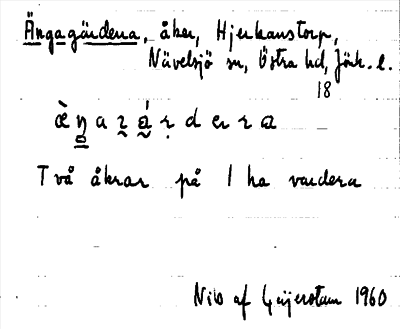 Ängagärdena, åker, Hjerkanstorp,
Nävelsjö sn, Östra hd, Jönk. l.
18
æ̀ŋaɀa̤̍ṛderna
Två åkrar på 1 ha vardera
Nils af Geijerstam 1960